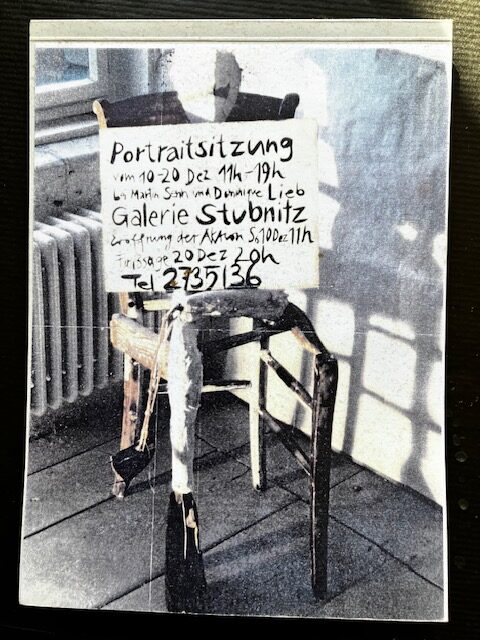 Portraitsitzung
vom 10-20 Dez 11h-19h
bei Martin Schri und Dominique Lieb
Galerie Stubnitz
Eröffnung der Aktion So, 10 Dez 11h
Finissage 20 Dez 20h
Tel 2735136